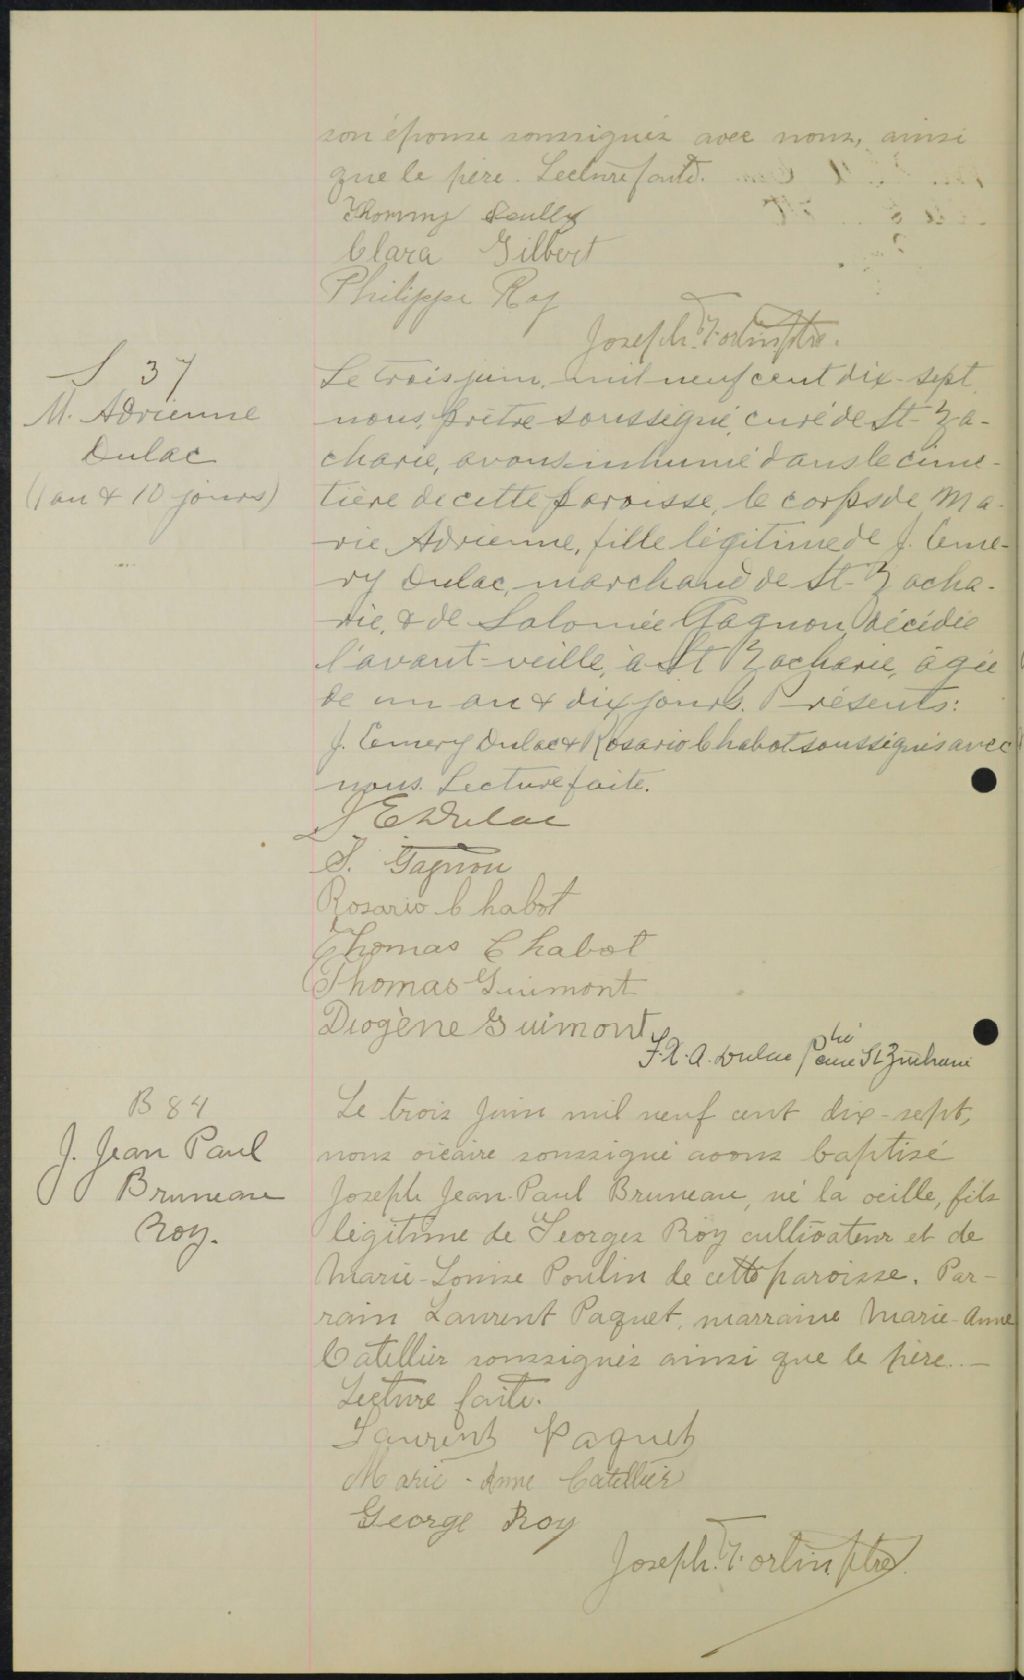 son épouse soussignés avec nous, ainsi
que le père. Lecture faite.
Thommy Scully
Clara Gilbert
Philippe Roy
Joseph. Fortin ptre.
S 37
M. Adrienne
Dulac
(1 an & 10 jours)
Le trois juin, mil neuf cent dix-sept,
nous, prêtre soussigné, curé de St-Za-
charie, avons inhumé dans le cime-
tière de cette paroisse, le corps de Ma-
rie Adrienne, fille légitime de J. Eme-
ry Dulac, marchand de St-Zacha-
rie, & de Salomée Gagnon, décédée
l'avant-veille, à St Zacharie, âgée
de un an & dix jours. Présents:
J. Emery Dulac & Rosario Chabot soussignés avec
nous. Lecture faite.
J E Dulac
S. Gagnon
Rosario Chabot
Thomas Chabot
Thomas Guimont
Diogène Guimont
F.X.A. Dulac Ptre curé St Zacharie
B 84
J. Jean Paul
Bruneau
Roy.
Le trois Juin mil neuf cent dix-sept,
nous vicaire soussigné avons baptisé
Joseph Jean-Paul Bruneau, né la veille, fils
légitime de Georges Roy cultivateur et de
Marie-Louise Poulin de cette paroisse. Par-
rain Laurent Paquet, marraine Marie-Anne
Catellier soussignés ainsi que le père. –
Lecture faite.
Laurent Paquet
Marie-Anne Catellier
George Roy
Joseph. Fortin ptre.